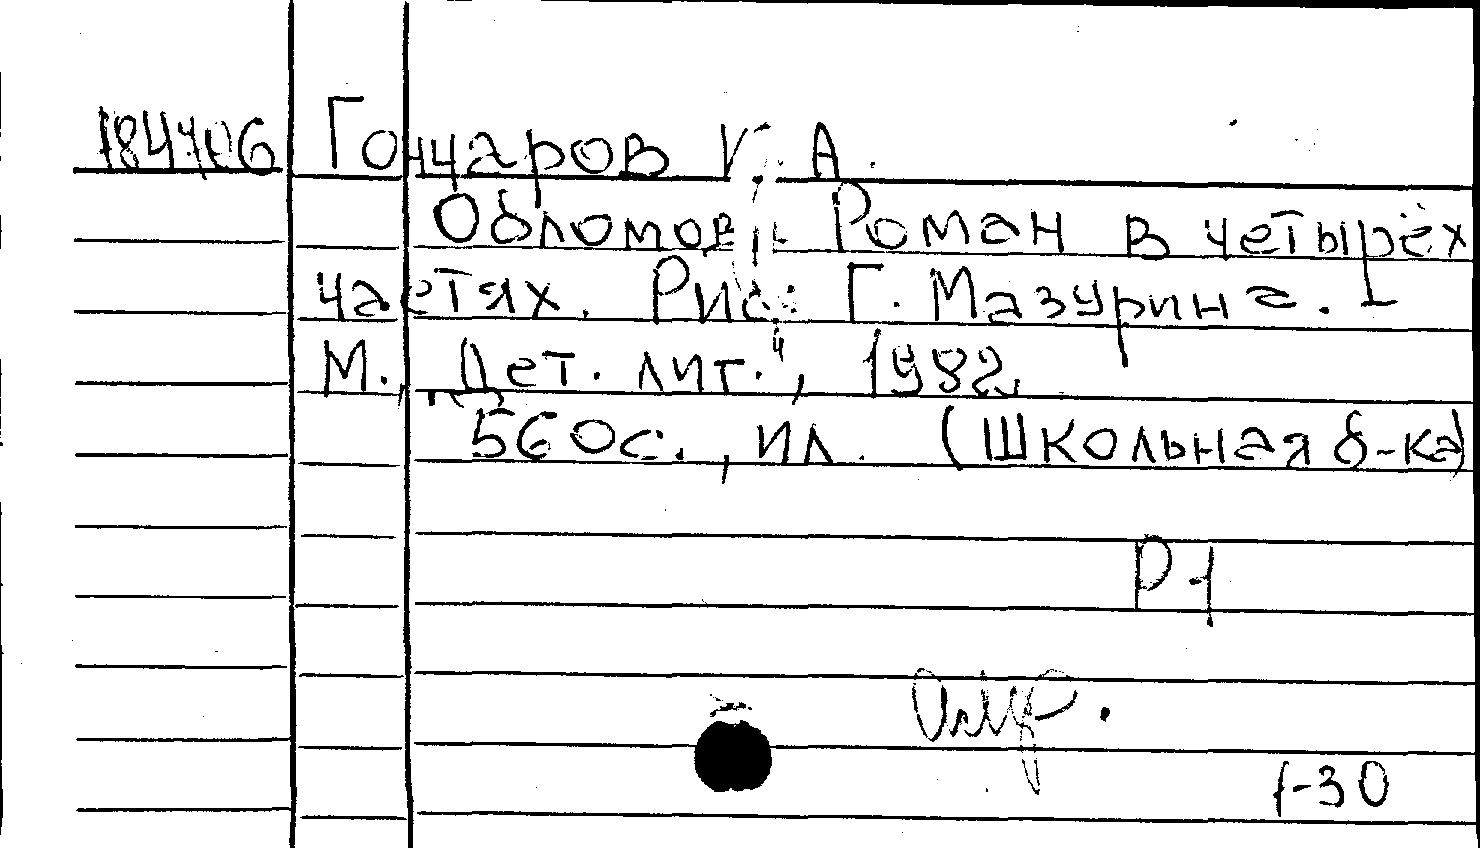 184106 Гончаров И. А.
Обломов: Роман в четырёх
частях. Рис. Г. Мазурина. –
М., „Дет. лит.", 1982
560с., ил. (Школьная б-ка)
Р1
1-30